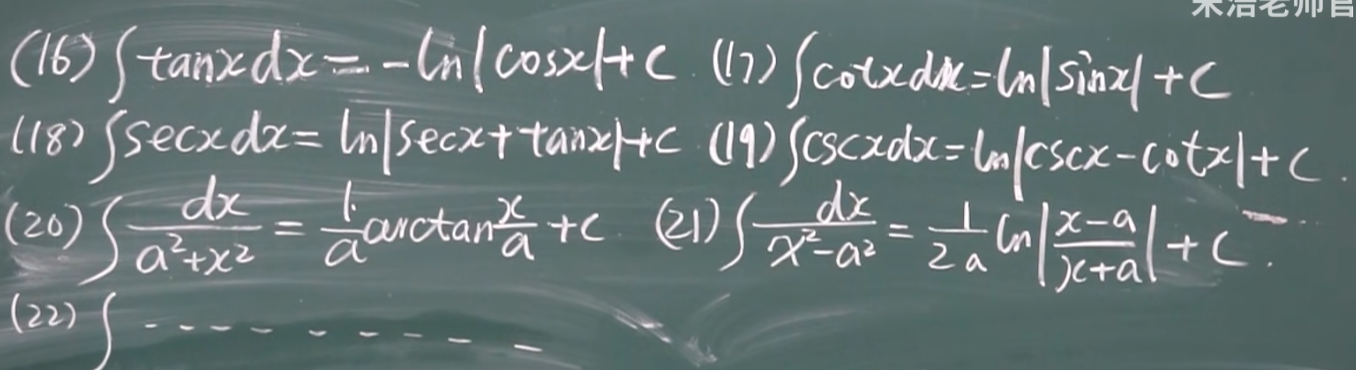 宋浩老师官
(16) ∫tanxdx = -ln|cosx|+C. (17) ∫cotxdx=ln|sinx|+C
(18) ∫secxdx= ln|secx+tanx|+C (19) ∫cscxdx=ln|cscx-cotx|+C.
(20) ∫dx/(a²+x²) = 1/a arctan x/a +C (21) ∫dx/(x²-a²) = 1/(2a) ln|(x-a)/(x+a)|+C.
(22) ∫ ---------